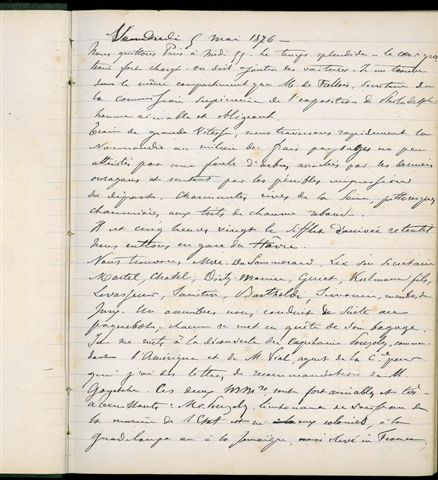 Vendredi 5 mai 1876 —
Nous quittons Paris à midi 55. Le temps splendide — le
train fort chargé on doit ajouter des voitures. Je me trouve
dans le même compartiment que M. de
la commission supérieure de l'exposition de Philadelphie
homme aimable et obligeant.
Train de grande vitesse, nous traversons rapidement la
Normandie au milieu de frais paysages un peu
attristés par une foule d'arbres arrachés par les derniers
ouragans et surtout par les pénibles impressions
du départ. Charmantes rives de la Seine, pittoresques
chaumières aux toits de chaume
Il est cinq heures vingt le sifflet d'arrivée retentit
Nous entrons en gare du Hâvre.
Nous trouvons, Mrs. Du Sommerard, son secrétaire
Martel, Chatel, Kulmann fils,
Levasseur, Bartholdi, Simonin, membre du
Jury. Un omnibus nous conduit de suite au
paquebot, chacun se met en quête de son bagage.
Je me mets à la découverte du capitaine Pouzolz, comman-
dant l'Amérique et de M. Vial, agent de la Cie pour
qui j'ai des lettres de recommandation de M
Ces deux MMrs sont fort aimables et très
M. Pouzolz, lieutenant de vaisseau de
la marine de l'Etat et né aux colonies, à la
Guadeloupe ou à la Jamaïque, mais élevé en France.